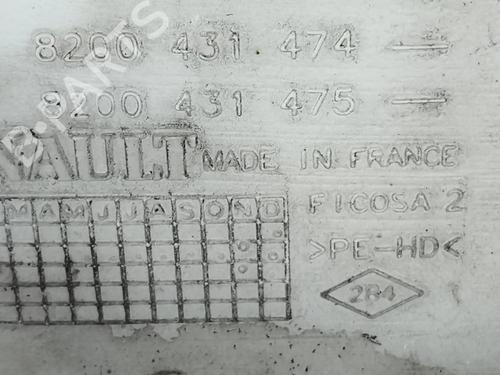 8200 431 474
8200 431 475
NAULT MADE IN FRANCE
M A M J J A S O N D
FICOSA 2
>PE-HD<
284
B-PARTS